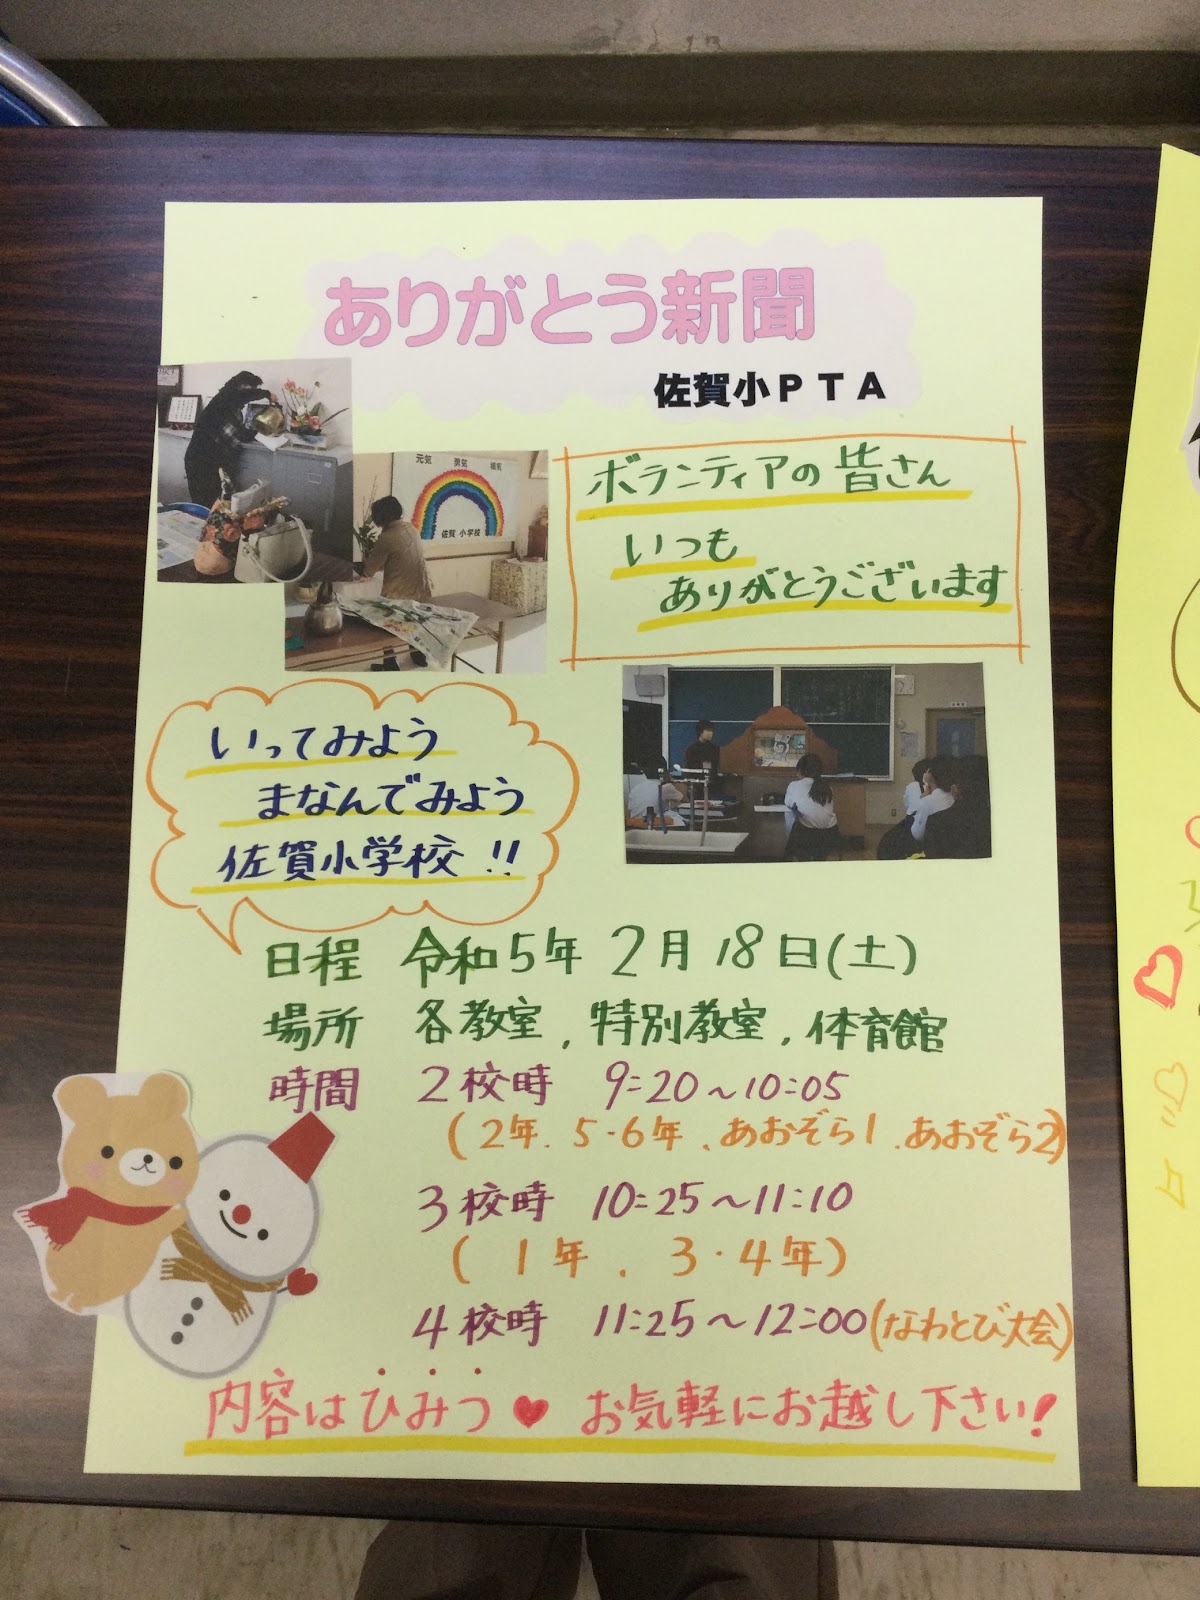 ありがとう新聞
佐賀小PTA
元気 勇気
佐賀 小学校
ボランティアの皆さん
いつも
ありがとうございます
いってみよう
まなんでみよう
佐賀小学校!!
日程 令和5年 2月 18日(土)
場所 各教室, 特別教室, 体育館
時間 2校時 9:20~10:05
(2年. 5・6年、あおぞら1.あおぞら2)
3校時 10:25~11:10
(1年. 3・4年)
4校時 11:25~12:00(なわとび大会)
内容はひみつ♥ お気軽にお越し下さい!